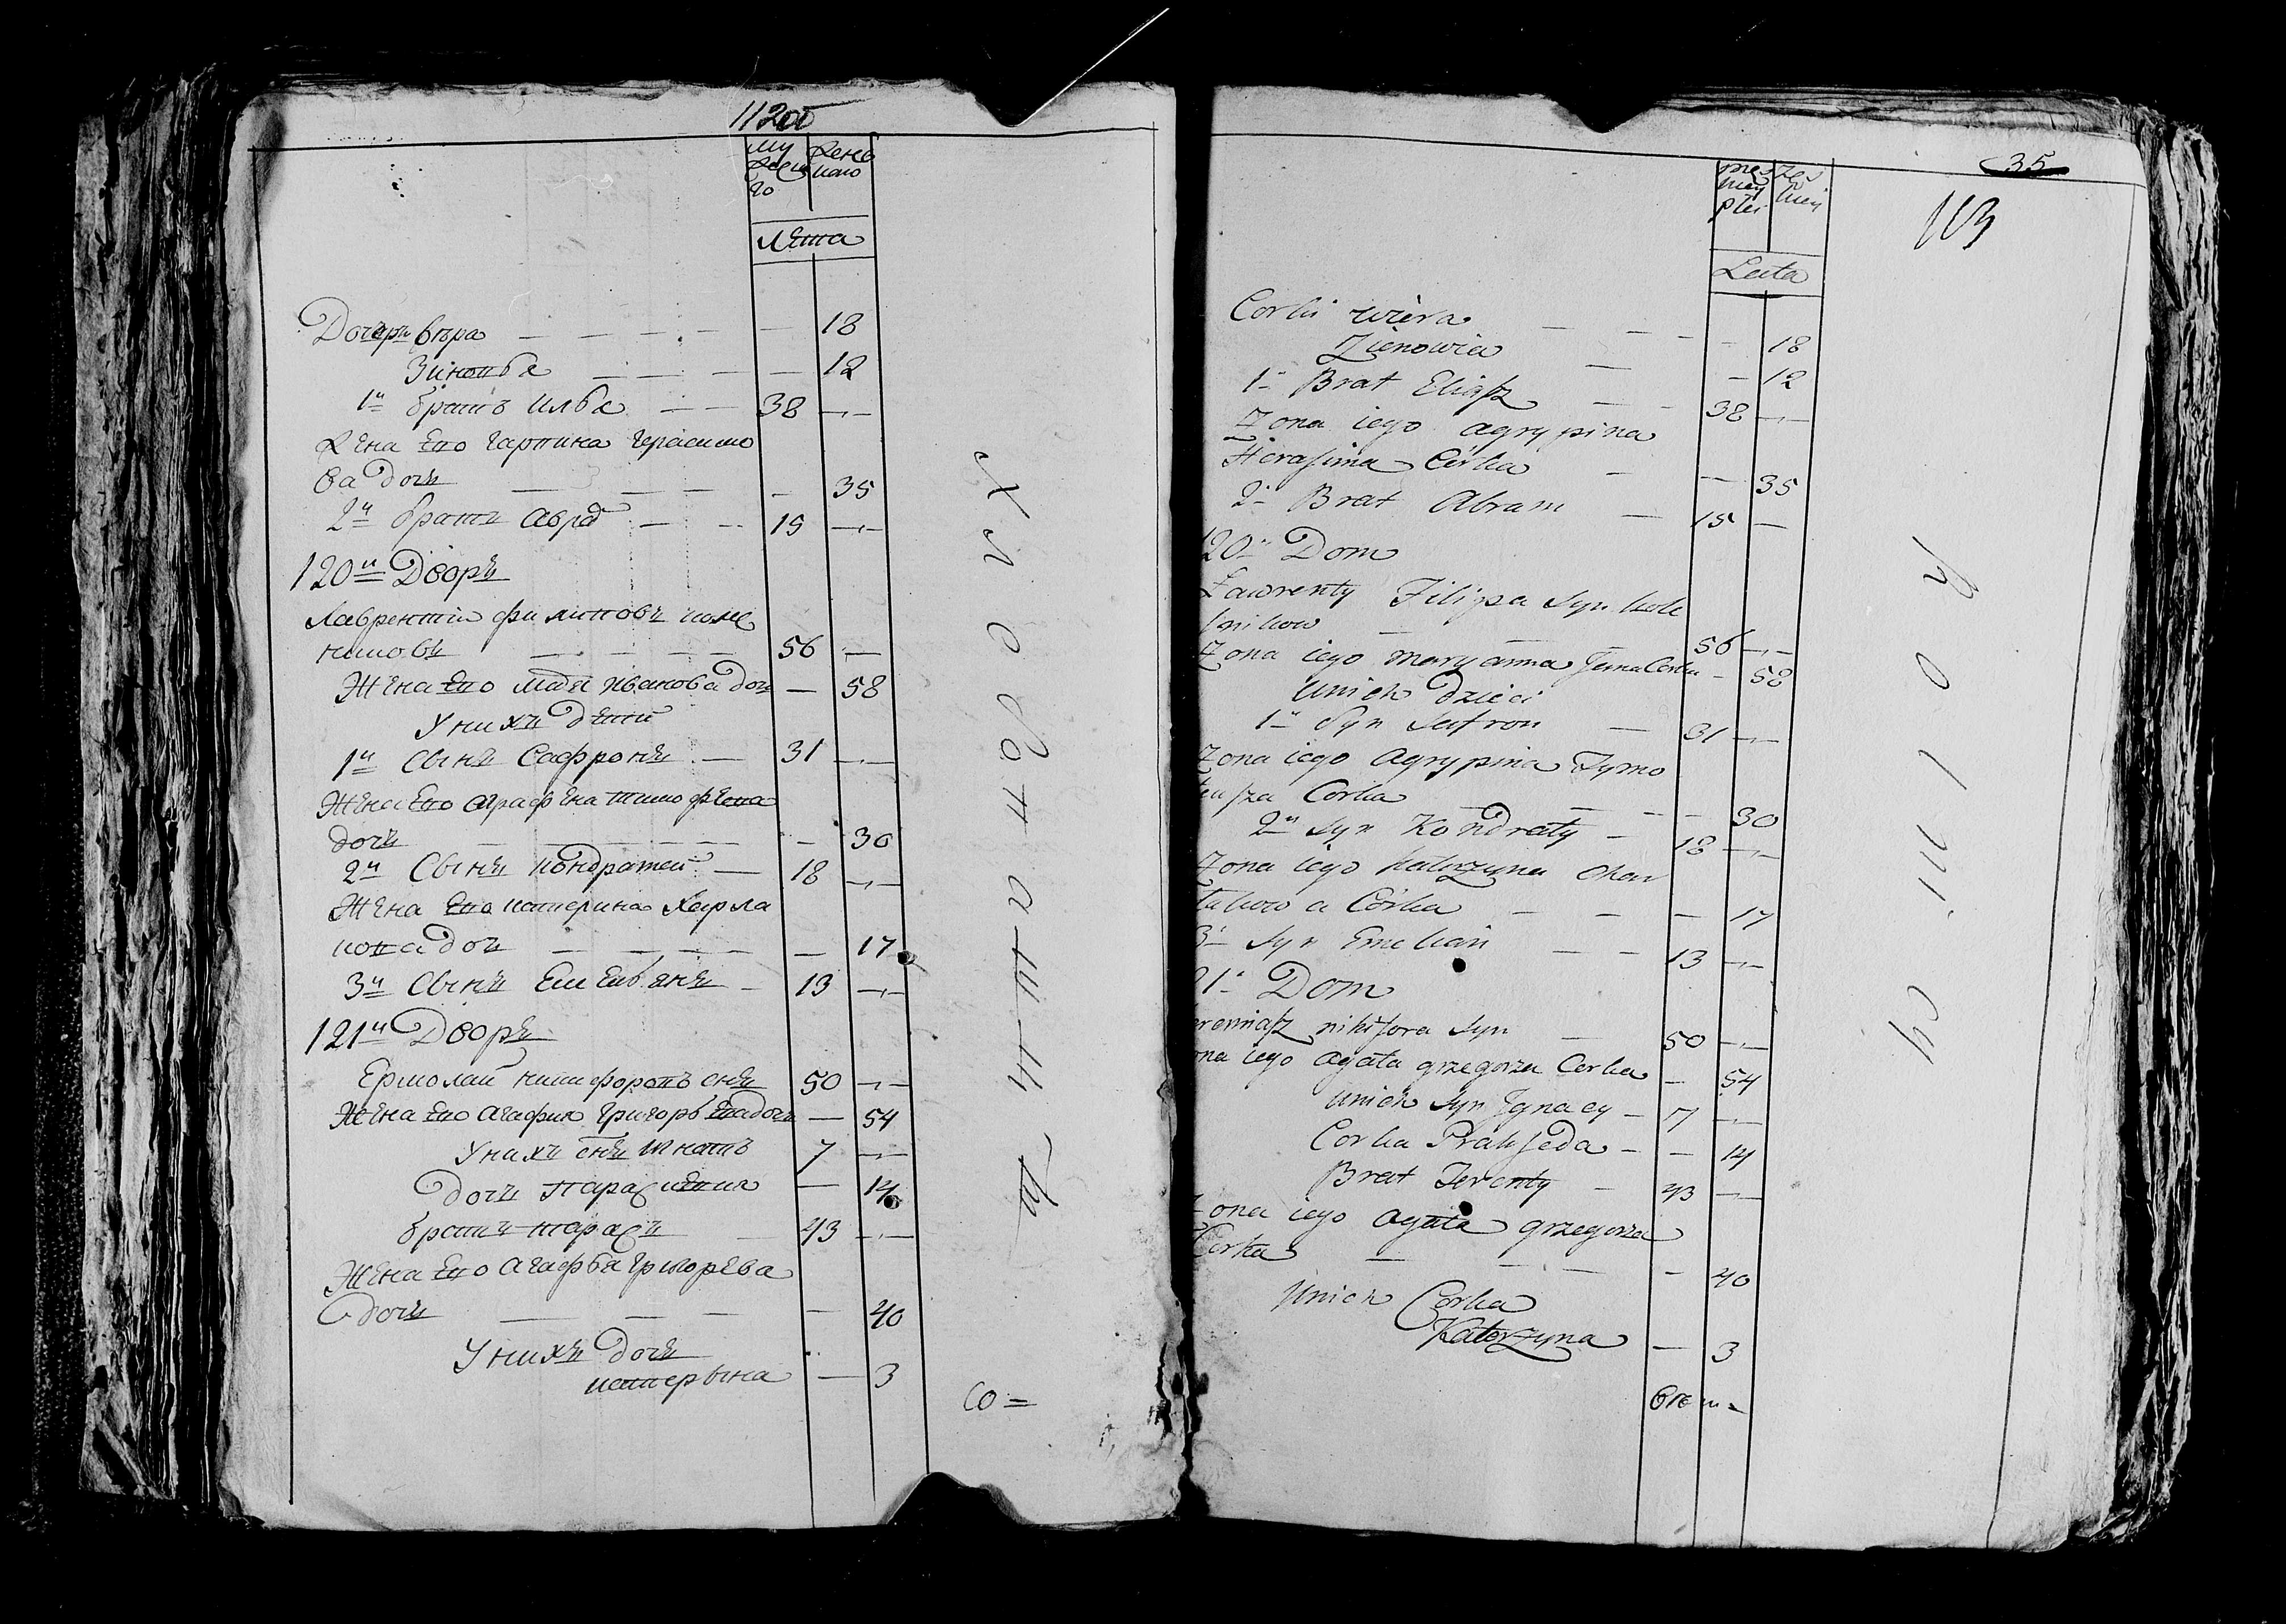 11200
му
жеска
го
жень
ского
Лета
Дочери вѣра — — — — — 18
Зиновья — — — 12
1й братъ Илья — 38 —
Жена Его гарпина герасимо
ва дочь — — — 35
2й братъ аврам — 15 —
120й Дворъ
Лаврентий филиповъ
56 —
Жена Его марья иванова дочь — 58
У нихъ дети
1й Сынъ Сафронъ — 31 —
Жена Его аграфена тимофеева
дочь — — 30
2й Сынъ кондратей — 18 —
Жена Его катерина
дочь — — 17
3й Сынъ Емельянъ — 13 —
121й Дворъ
Ермолай никифоровъ снъ 50 —
Жена Его агафия григорьева дочь — 54
У нихъ снъ игнатъ 7 —
дочь — 14
братъ тарасъ 43 —
Жена Его агафья григорева
дочь — — — 40
У нихъ дочь
катерына — 3
Со =
35
113
męz
kiey
płei
Zeń
skiey
Lata
Corki Wiera — — 18
Zienowia — — 12
1. Brat Eliasz — 38 —
Zona iego agrypina
Herasima Córka — — 35
2. Brat Abram — 15 —
120. Dom
Ławrenty Filipa Syn
56 —
Zona iego maryanna Jana Corka — 58
Unich dzieci
1. Syn Safron — 31 —
Zona iego Agrypina Tymo
teusza Corka — — 30
2. Syn Kondraty — 18 —
Zona iego katarzyna
Córka — — — 17
3. Syn Emelian — — 13 —
21. Dom
nikifora Syn — 50 —
ona iego agata grzegorza Corka — 54
Unich Syn Jgnacy — 7 —
Corka Prakseda — — 14
Brat Terenty — 43 —
Zona iego agata grzegorza
Corka — — — 40
Unich Corka
Katarzyna — 3